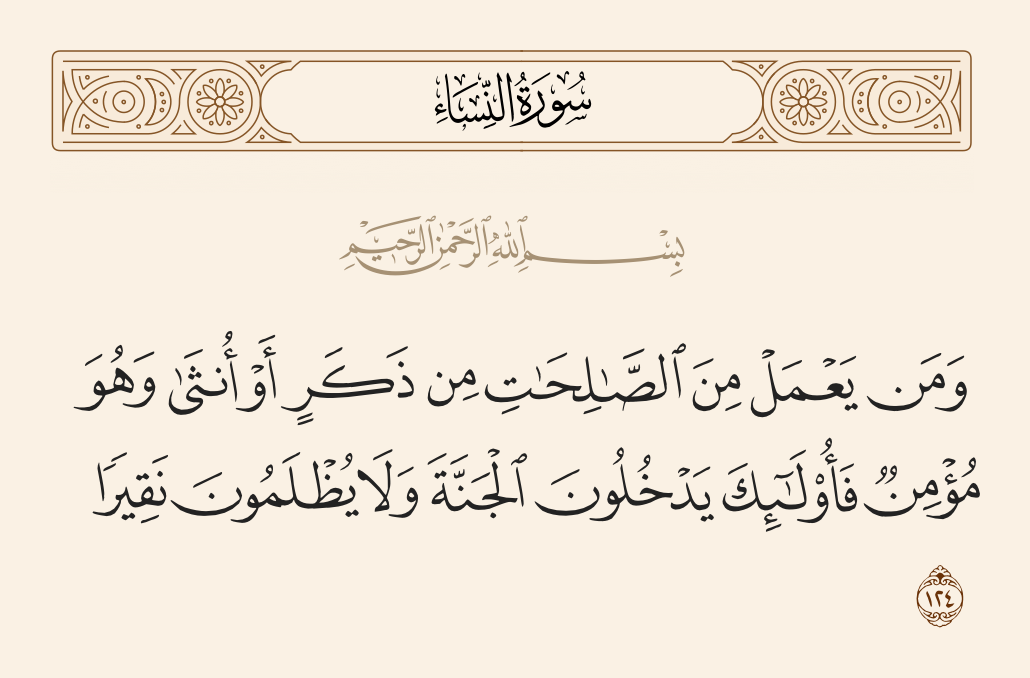 سُورَةُ النِّسَاءِ
بِسْمِ ٱللَّهِ ٱلرَّحْمَٰنِ ٱلرَّحِيمِ
وَمَن يَعْمَلْ مِنَ ٱلصَّـٰلِحَـٰتِ مِن ذَكَرٍ أَوْ أُنثَىٰ وَهُوَ
مُؤْمِنٌ فَأُو۟لَـٰٓئِكَ يَدْخُلُونَ ٱلْجَنَّةَ وَلَا يُظْلَمُونَ نَقِيرًا
١٢٤